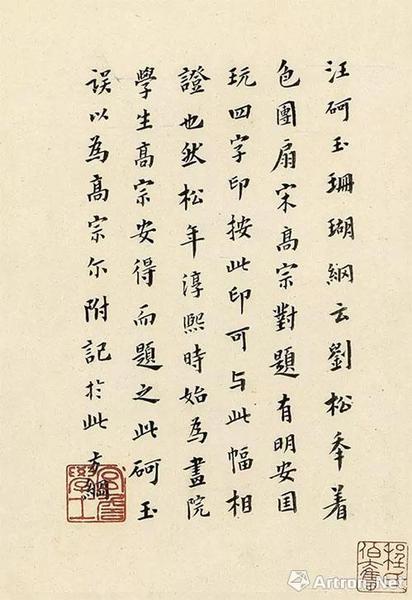 汪砢玉珊瑚網云劉松秊着
色團扇宋髙宗對題有明安国
玩四字印按此印可与此幅相
證也然松年淳熙時始為畫院
學生髙宗安得而題之此砢玉
誤以為髙宗尔附記於此 方綱
宮詹學士
程氏伯奮
Artron.Net